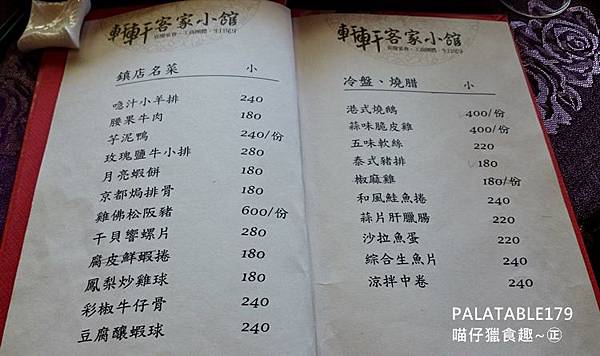 軒軒客家小館
鎮店名菜 小
噫汁小羊排 240
腰果牛肉 180
芋泥鴨 240/份
玫瑰鹽牛小排 280
月亮蝦餅 180
京都焗排骨 180
雞佛松阪豬 600/份
干貝響螺片 280
腐皮鮮蝦捲 180
鳳梨炒雞球 180
彩椒牛仔骨 240
豆腐釀蝦球 240
軒軒客家小館
冷盤、燒腊 小
港式燒鵝 400/份
蒜味脆皮雞 400/份
五味軟絲 220
泰式豬排 180
椒麻雞 180/份
和風鮭魚捲 240
蒜片肝臘腸 220
沙拉魚蛋 220
綜合生魚片 240
涼拌中卷 240
PALATABLE179
喵仔獵食趣~㊣